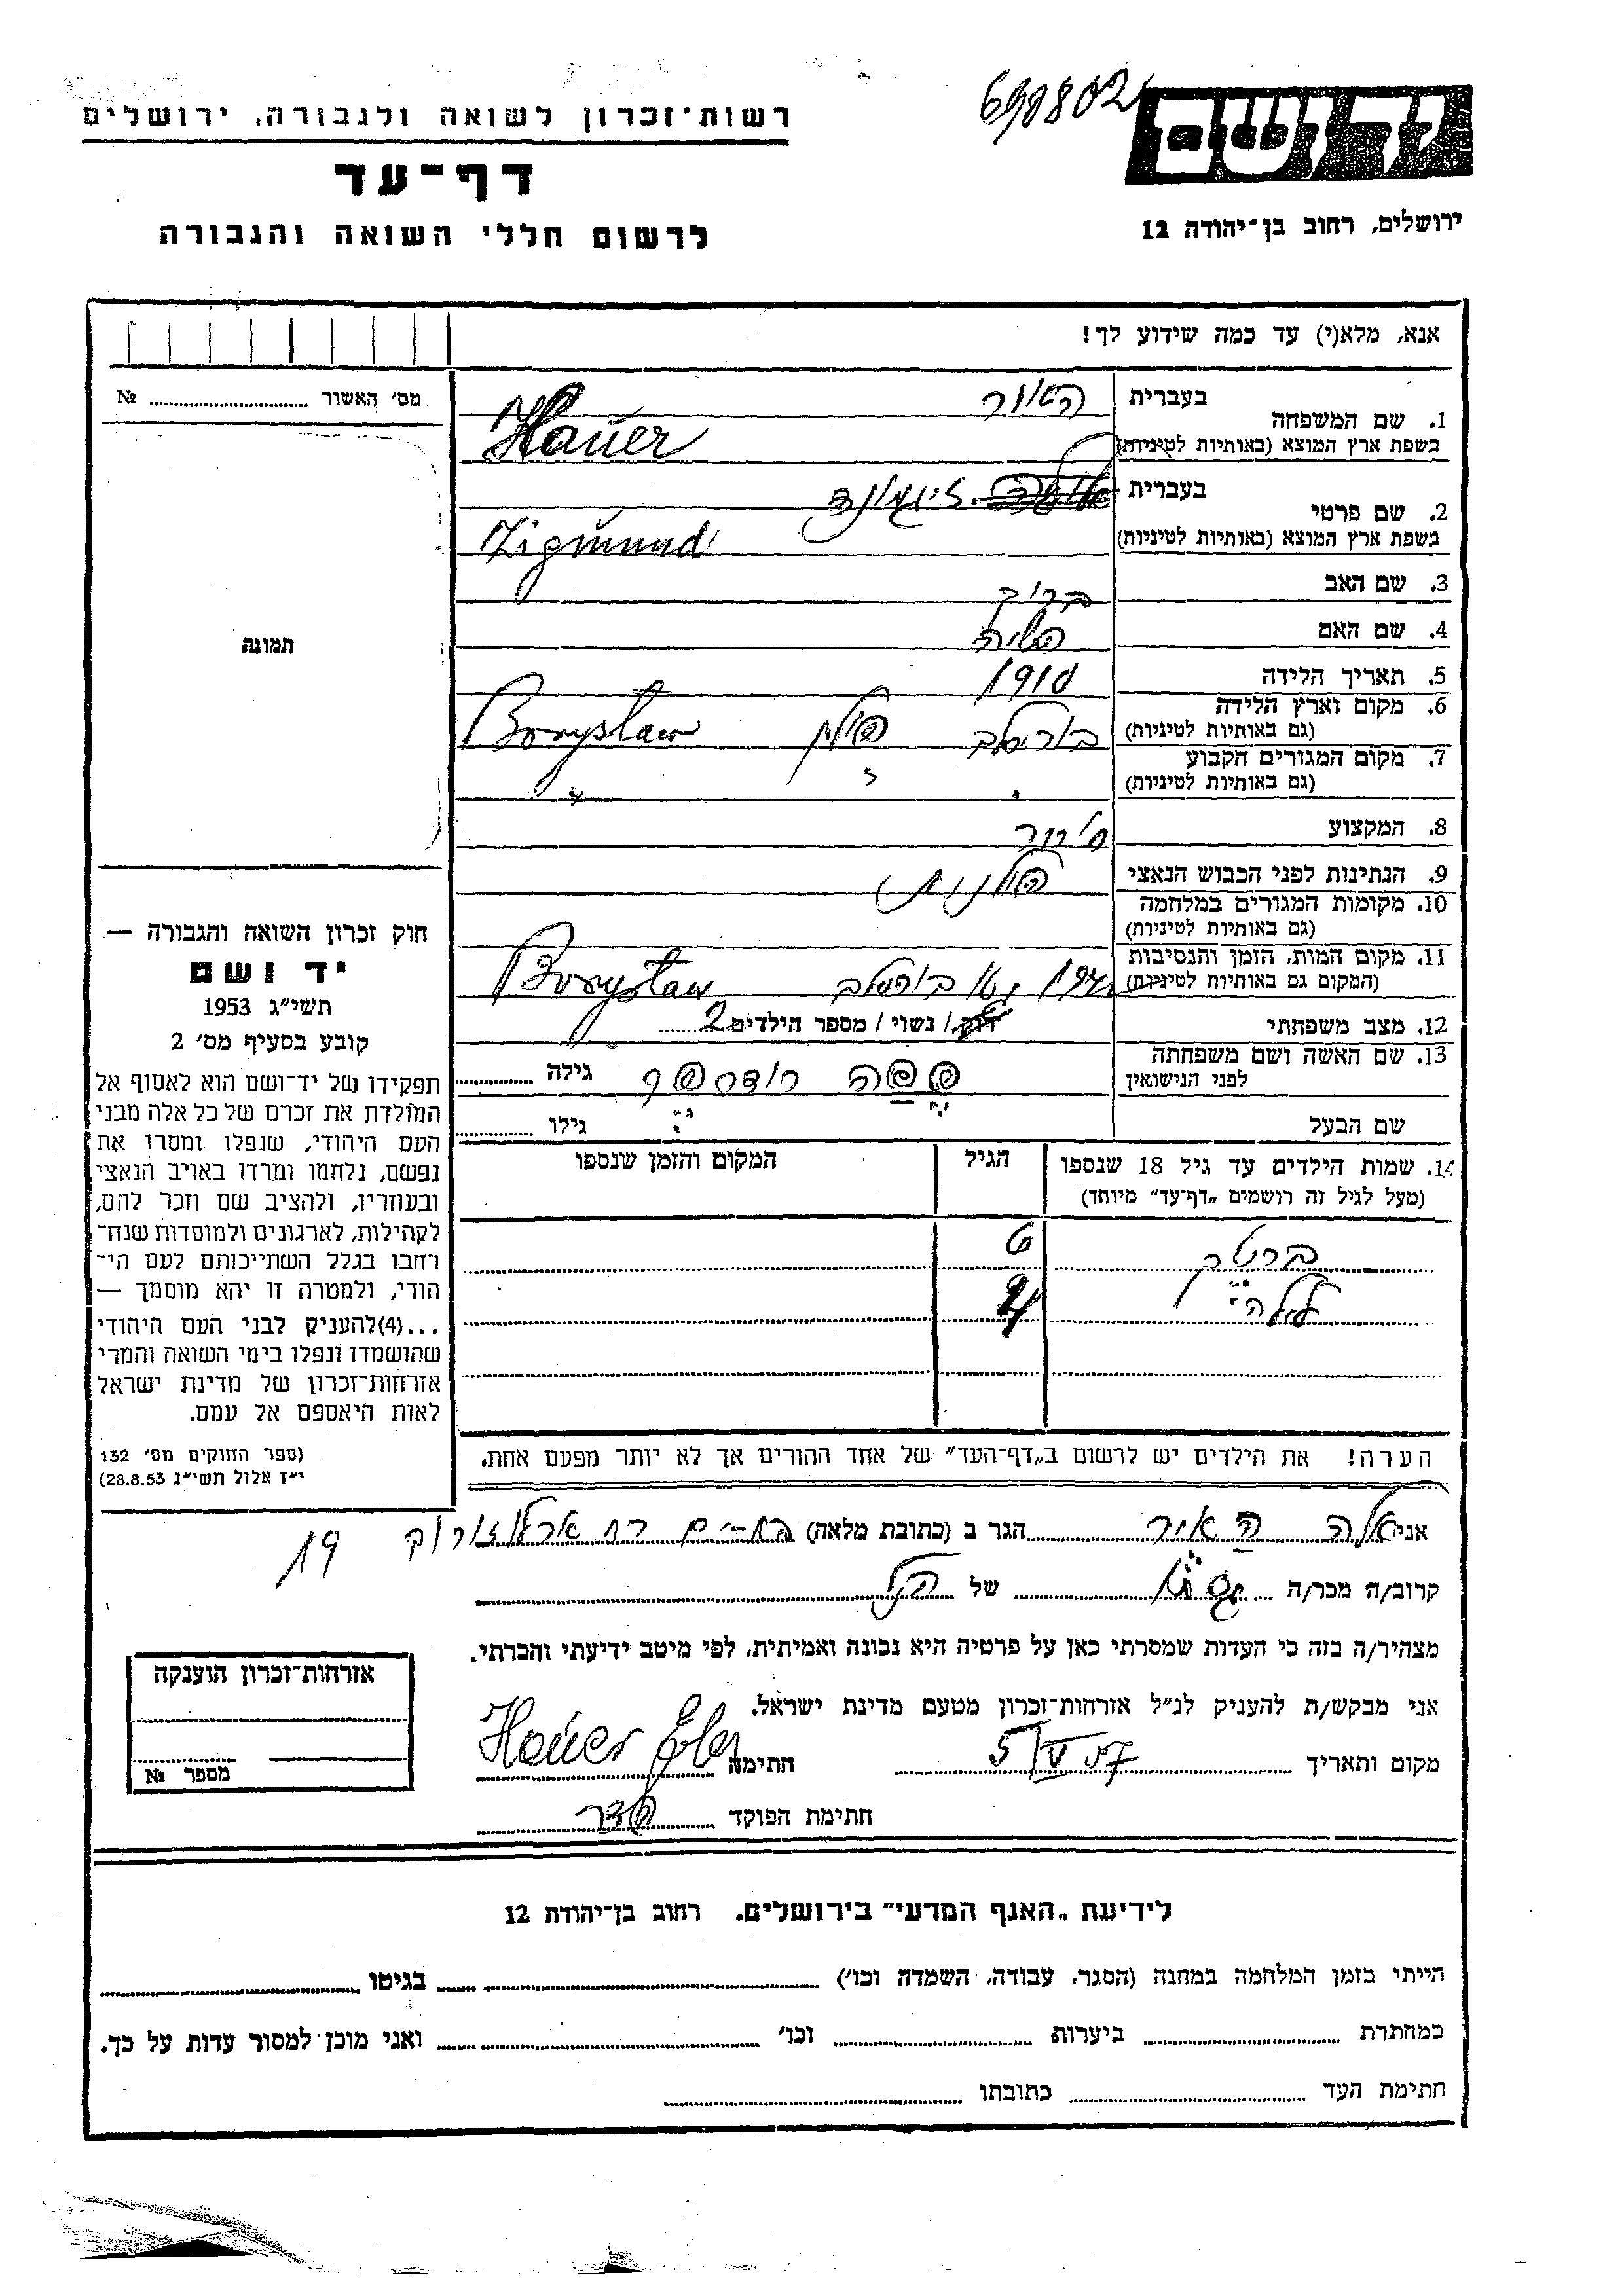 690802
יד ושם
רשות־זכרון לשואה ולגבורה, ירושלים
דף־עד
לרשום חללי השואה והגבורה
ירושלים, רחוב בן־יהודה 12
אנא, מלא(י) עד כמה שידוע לך!
מס׳ האשור № 
תמונה
חוק זכרון השואה והגבורה —
יד ושם
תשי״ג 1953
קובע בסעיף מס׳ 2
תפקידו של יד־ושם הוא לאסוף אל
המולדת את זכרם של כל אלה מבני
העם היהודי, שנפלו ומסרו את
נפשם, נלחמו ומרדו באויב הנאצי
ובעוזריו, ולהציב שם וזכר להם,
לקהילות, לארגונים ולמוסדות שנח־
רחבו בגלל השתייכותם לעם הי־
הודי, ולמטרה זו יהא מוסמך —
...(4)להעניק לבני העם היהודי
שהושמדו ונפלו בימי השואה והמרי
אזרחות־זכרון של מדינת ישראל
לאות היאספם אל עמם.
(ספר החוקים מס׳ 132
י״ז אלול תשי״ג 28.8.53)
1. שם המשפחה
בעברית האור
בשפת ארץ המוצא (באותיות לטיניות) Hauer
2. שם פרטי
בעברית זיגמונד
בשפת ארץ המוצא (באותיות לטיניות) Zigmund
3. שם האב ברוך
4. שם האם
5. תאריך הלידה 1910
6. מקום וארץ הלידה בוריסלב פולין Boryslaw
(גם באותיות לטיניות)
7. מקום המגורים הקבוע " " "
(גם באותיות לטיניות)
8. המקצוע סוחר
9. הנתינות לפני הכבוש הנאצי פולנית
10. מקומות המגורים במלחמה
(גם באותיות לטיניות)
11. מקום המות, הזמן והנסיבות בוריסלב Boryslaw
(המקום גם באותיות לטיניות)
12. מצב משפחתי רוק / נשוי / מספר הילדים 2
13. שם האשה ושם משפחתה גילה
לפני הנישואין
שם הבעל גילו
14. שמות הילדים עד גיל 18 שנספו הגיל המקום והזמן שנספו
(מעל לגיל זה רושמים „דף־עד״ מיוחד)
6
הערה! את הילדים יש לרשום ב„דף־העד״ של אחד ההורים אך לא יותר מפעם אחת.
אני אלה האור הגר ב (כתובת מלאה) בת־ים רח ארלוזורוב 19
קרוב/ה מכר/ה גיס של הנ״ל
מצהיר/ה בזה כי העדות שמסרתי כאן על פרטיה היא נכונה ואמיתית, לפי מיטב ידיעתי והכרתי.
אני מבקש/ת להעניק לנ״ל אזרחות־זכרון מטעם מדינת ישראל.
מקום ותאריך 5/V 57 חתימה Hauer Ela
חתימת הפוקד
אזרחות־זכרון הוענקה
מספר №
לידיעת „האגף המדעי״ בירושלים, רחוב בן־יהודת 12
הייתי בזמן המלחמה במחנה (הסגר, עבודה, השמדה וכו׳) בגיטו
במחתרת ביערות וכו׳ ואני מוכן למסור עדות על כך.
חתימת העד כתובתו